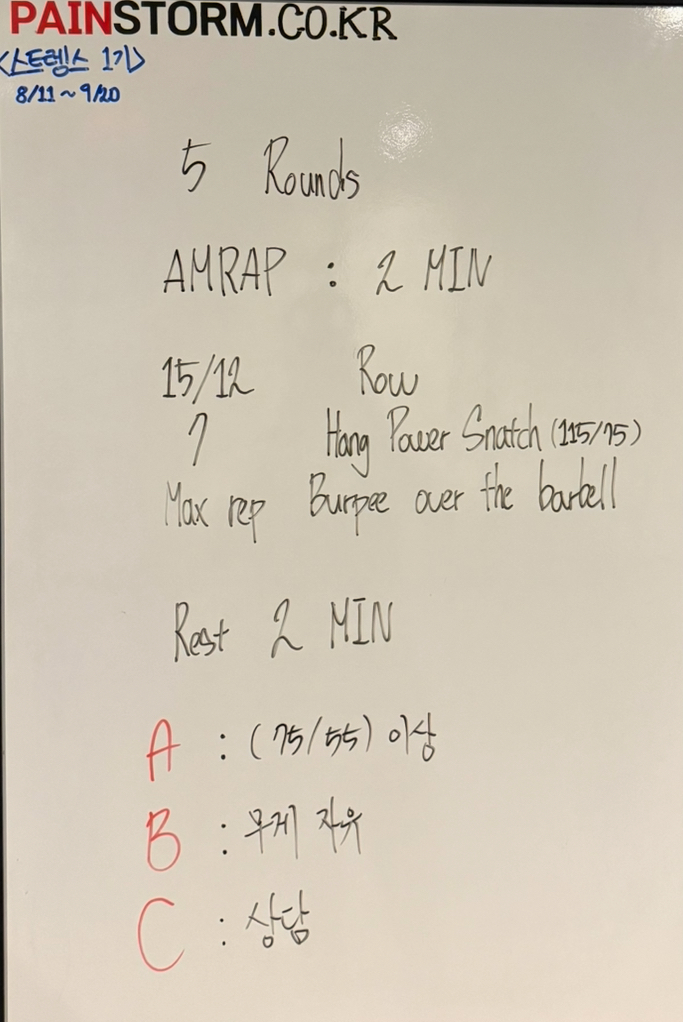 PAINSTORM.CO.KR
<스트렝스 1기>
8/11 ~ 9/20
5 Rounds
AMRAP : 2 MIN
15/12 Row
7 Hang Power Snatch (115/75)
Max rep Burpee over the barbell
Rest 2 MIN
A : (75/55) 이상
B : 무게 자유
C : 상담